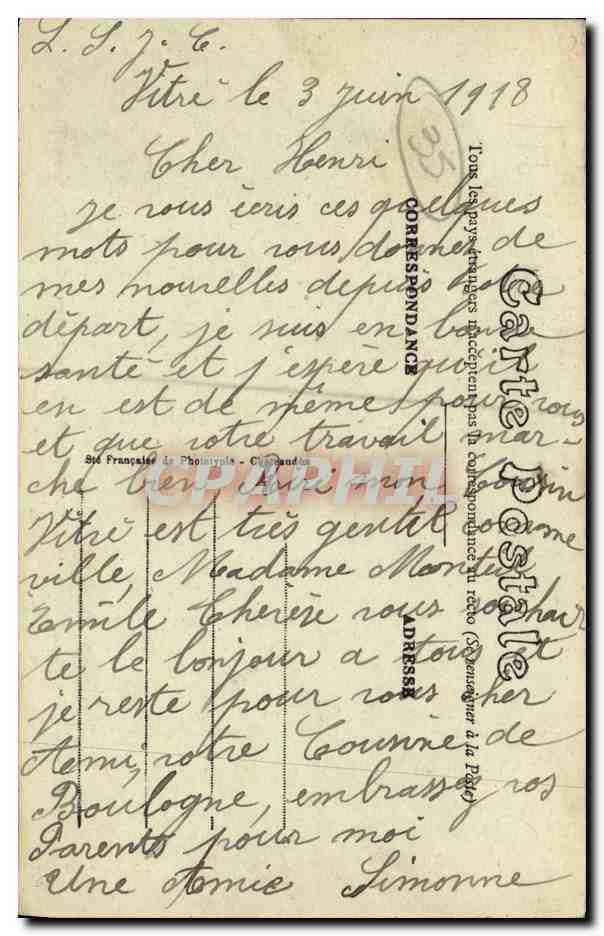 L. S. J. C.
Vitré le 3 juin 1918
35
Cher Henri
je vous écris ces quelques
mots pour vous donner de
mes nouvelles depuis votre
départ, je suis en bonne
santé et j'espère qu'il
en est de même pour vous
et que votre travail mar-
che bien, mon Cousin
Vitré est très gentil comme
ville, Madame
Emile Thérèse vous souhai
te le bonjour a tous et
je reste pour vous cher
Ami, votre Cousine de
Boulogne, embrassez vos
Parents pour moi
Une Amie Simonne
Carte Postale
Tous les pays étrangers n'acceptent pas la correspondance au recto (Se renseigner à la Poste)
CORRESPONDANCE
ADRESSE
Sté Française de Phototypie - Châteaudun
CPAPHIL